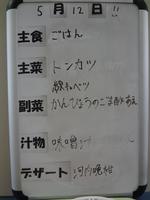 5月12日!!
主食 ごはん
主菜 トンカツ
線キャベツ
副菜 かんぴょうのごま酢あえ
汁物 味噌汁
デザート 河内晩柑